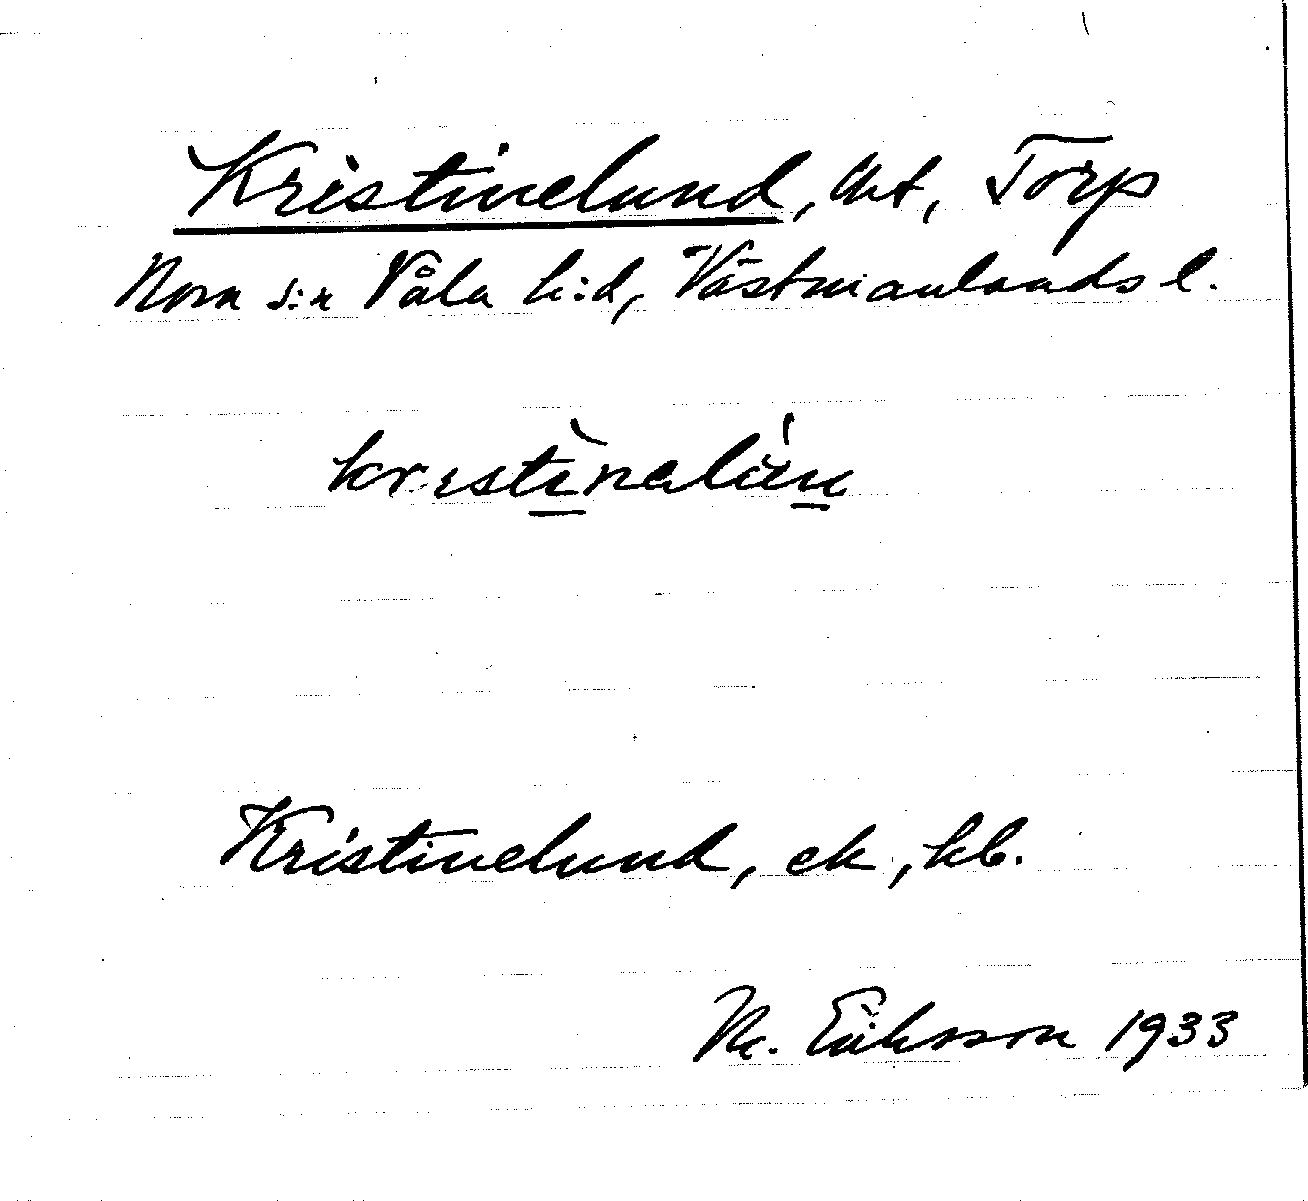 Kristinelund, lht, Torp
Nora s:n Våla h:d, Västmanlands l.
Kristinelund, ek, kb.
M. Eriksson 1933